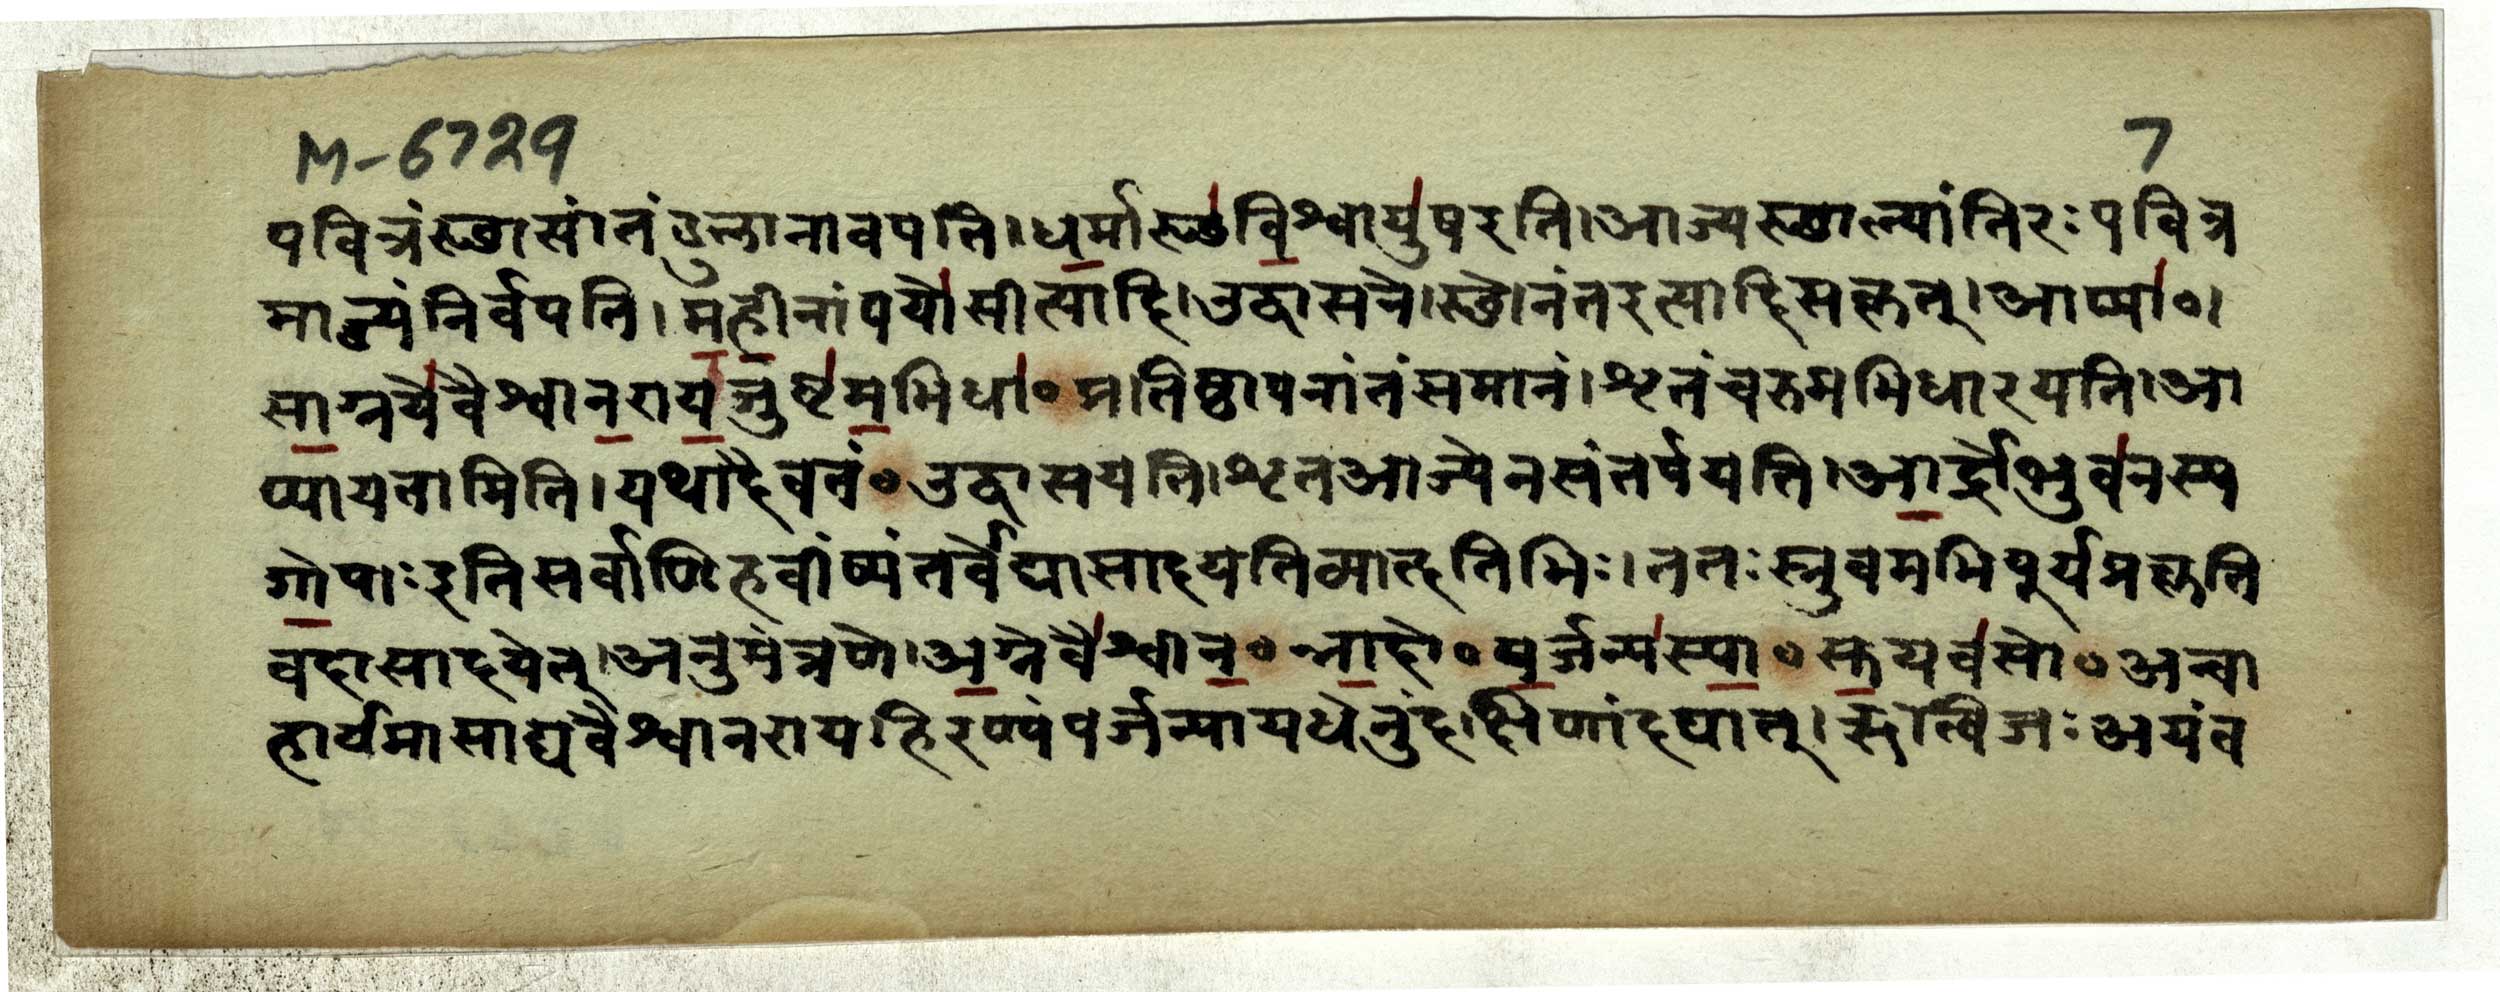 M-6729
7
पवित्रंस्थासांतंदुलानावपति।घर्मास्थविश्वायुषइति।आज्यस्थाल्यांतिरःपवित्र
माज्यंनिर्वपति।महीनांपयोसीत्यादि।उद्वासने।स्थोनंतइत्यादिसकृत्।आप्या॰।
साग्नयेवैश्वानरायजुष्टमभिघा॰प्रतिष्ठापनांतंसमानं।शृतंचरुमभिघारयति।आ
प्यायतामिति।यथादैवतं॰उद्वासयति।शृतआज्येनसंतर्पयति।आर्द्रोभुवनस्य
गोपाःइतिसर्वाणिहवींष्यंतर्वेद्यासादयतिव्याहृतिभिः।ततःस्रुवमभिपूर्यप्रकृति
वदासादयेत्।अनुमंत्रणे।अग्नेवैश्वान॰न्नादो॰पर्जन्यस्या॰स्तयवसो॰अन्वा
हार्यमासाद्यवैश्वानरायहिरण्यंपर्जन्यायधेनुंदक्षिणांदद्यात्।ऋत्विजःअयंव